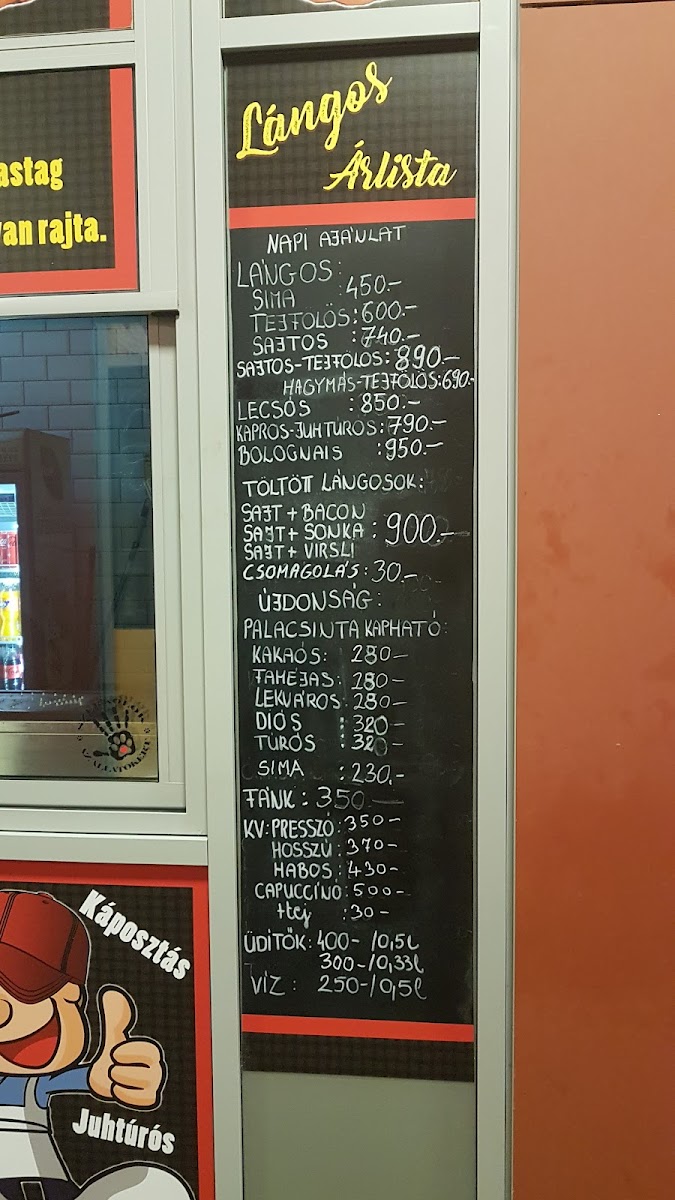 astag
van rajta.
Lángos
Árlista
NAPI AJÁNLAT
LÁNGOS:
SIMA : 450.-
TEJFÖLÖS: 600.-
SAJTOS : 740.-
SAJTOS-TEJFÖLÖS: 890.-
HAGYMÁS-TEJFÖLÖS: 690.-
LECSÓS : 850.-
KAPROS-JUHTÚRÓS: 790.-
BOLOGNAIS : 950.-
TÖLTÖTT LÁNGOSOK:
SAJT + BACON
SAJT + SONKA : 900.-
SAJT + VIRSLI
CSOMAGOLÁS: 30.-
ÚJDONSÁG:
PALACSINTA KAPHATÓ:
KAKAÓS: 280-
FAHÉJAS: 280-
LEKVÁROS: 280-
DIÓS : 320-
TÚRÓS : 320-
SIMA : 230.-
FÁNK: 350.-
KV: PRESSZÓ: 350-
HOSSZÚ: 370-
HABOS: 430-
CAPUCCÍNÓ: 500-
+tej : 30-
ÜDÍTŐK: 400- /0,5l
300-/0,33l
VÍZ: 250-/0,5l
Káposztás
Juhtúrós